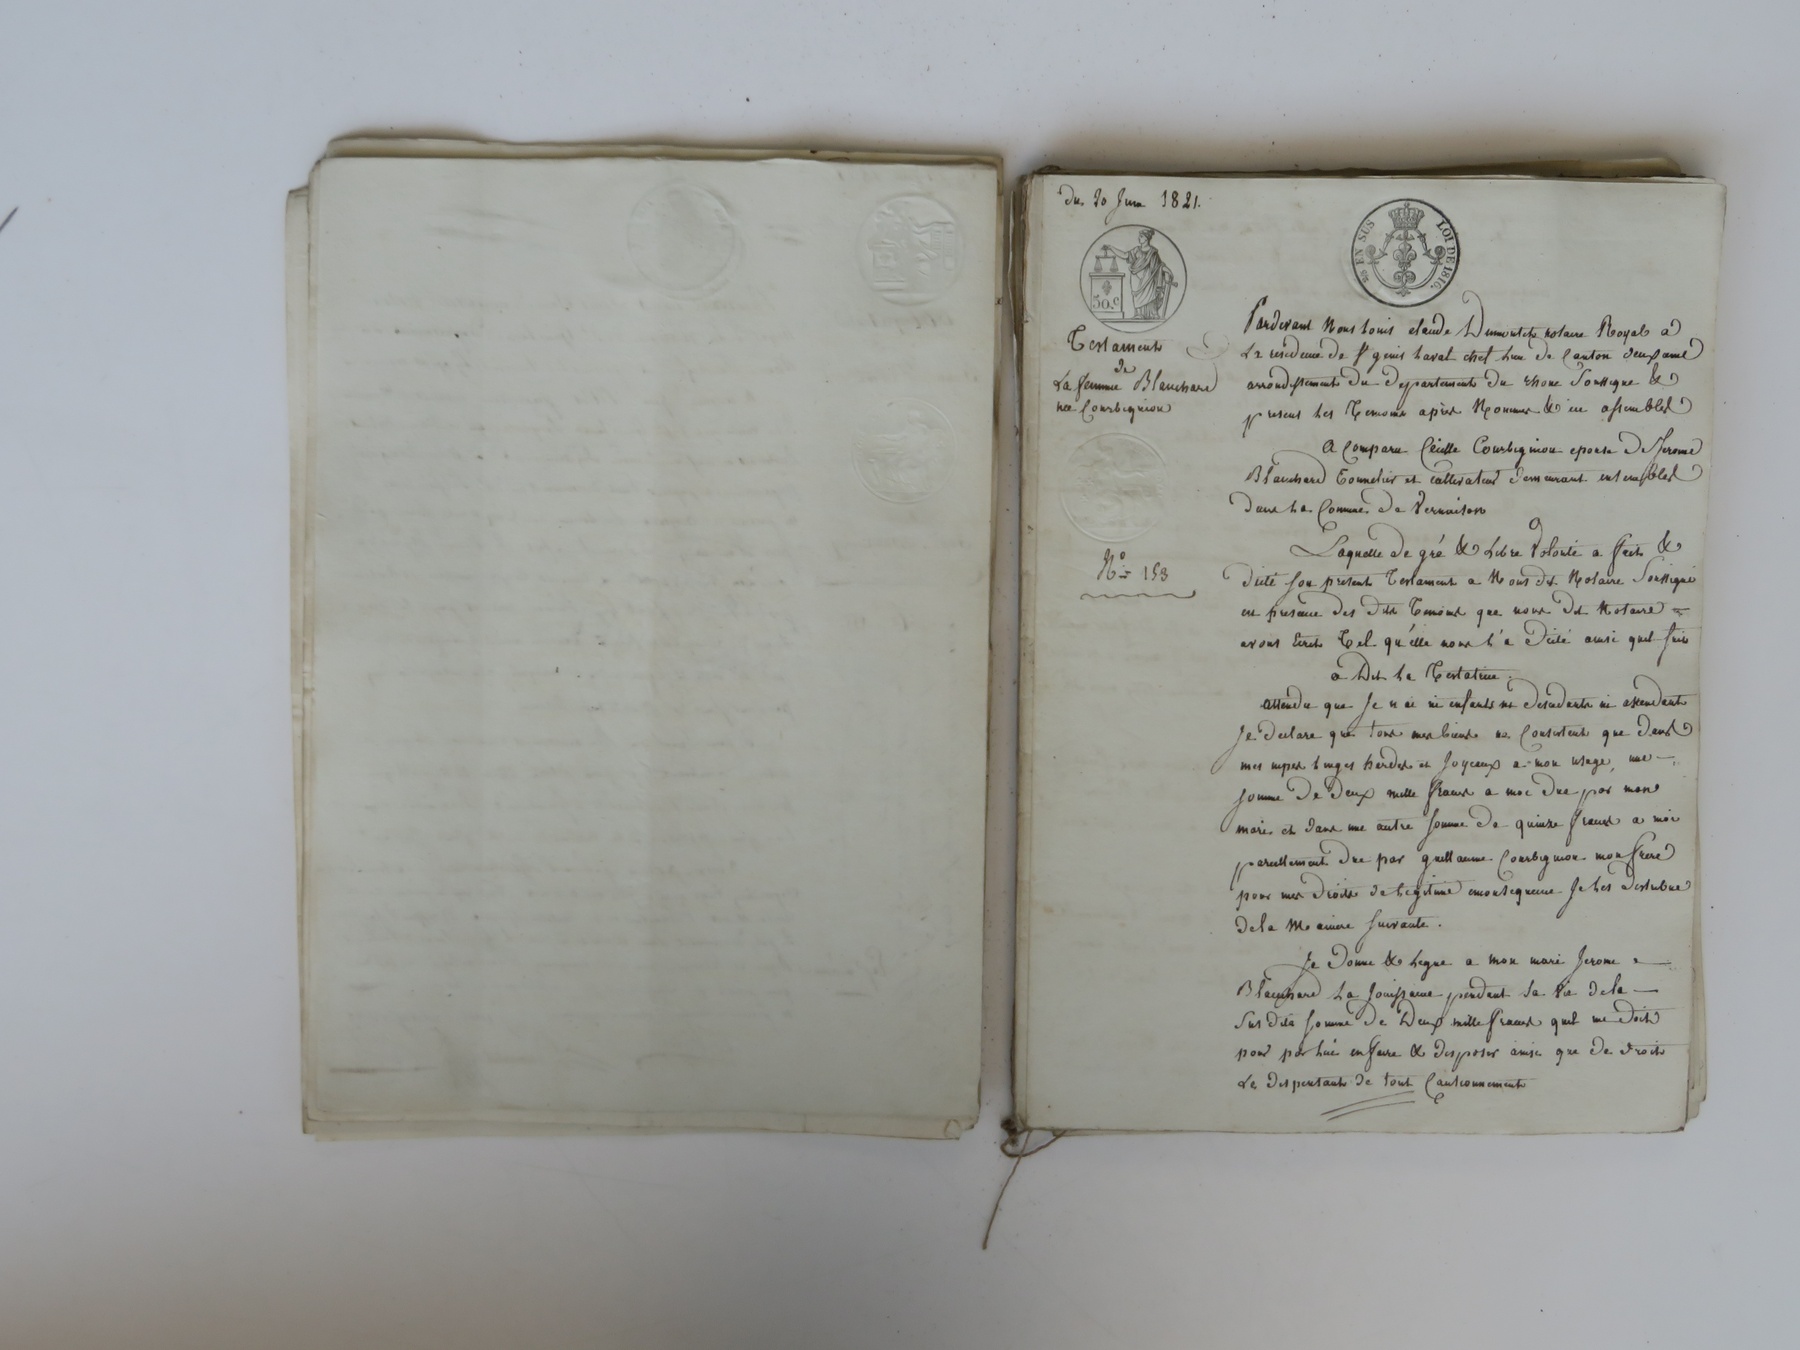 Du 20 Juin 1821.
EN SUS LOI DE 1816.
50.c
Testament
de
La femme Blanchard
née Courbignion
N.o 153
Pardevant Nous Louis claude Dumontet notaire Royal a
La residence de St genis Laval chef lieu de Canton deuxame
arrondissement du departement du rhone Soussigné &
present Les Temoins après Nommes & en assembles
A Comparu Cécille Courbignion epouse de Jerome
Blanchard Tonnelier et cultivateur demeurant ensembles
dans La Commune de Vernaison
Laquelle de gré & Libre Volonté a fait &
dicté son present Testament a Nous dit Notaire Soussigné
en presence des dits Temoins que nous dit Notaire =
avons Ecrit Tel qu'elle nous L'a dicté ainsi quil suit
a Dit La Testatrice.
attendu que Je n ai ni enfants ni descendants ni assendants
Je declare que tous mes biens ne Consistent que dans
mes nipes Linges hardes et Joyeaux a mon usage, une
somme de deux mille francs a moi due par mon
mari et dans une autre somme de quinze francs a moi
pareillement due par guillaume Courbignion mon frere
pour mes droits de Legitime consequence Je Les distribue
de la Maniere suivante.
Je donne & Legue a mon mari Jerome
Blanchard La Jouissance pendant sa vie de la
sus dite somme de deux mille francs quil me doit
pour par lui en faire & disposer ainsi que de droit
Le dispensant de tout Cautionnement